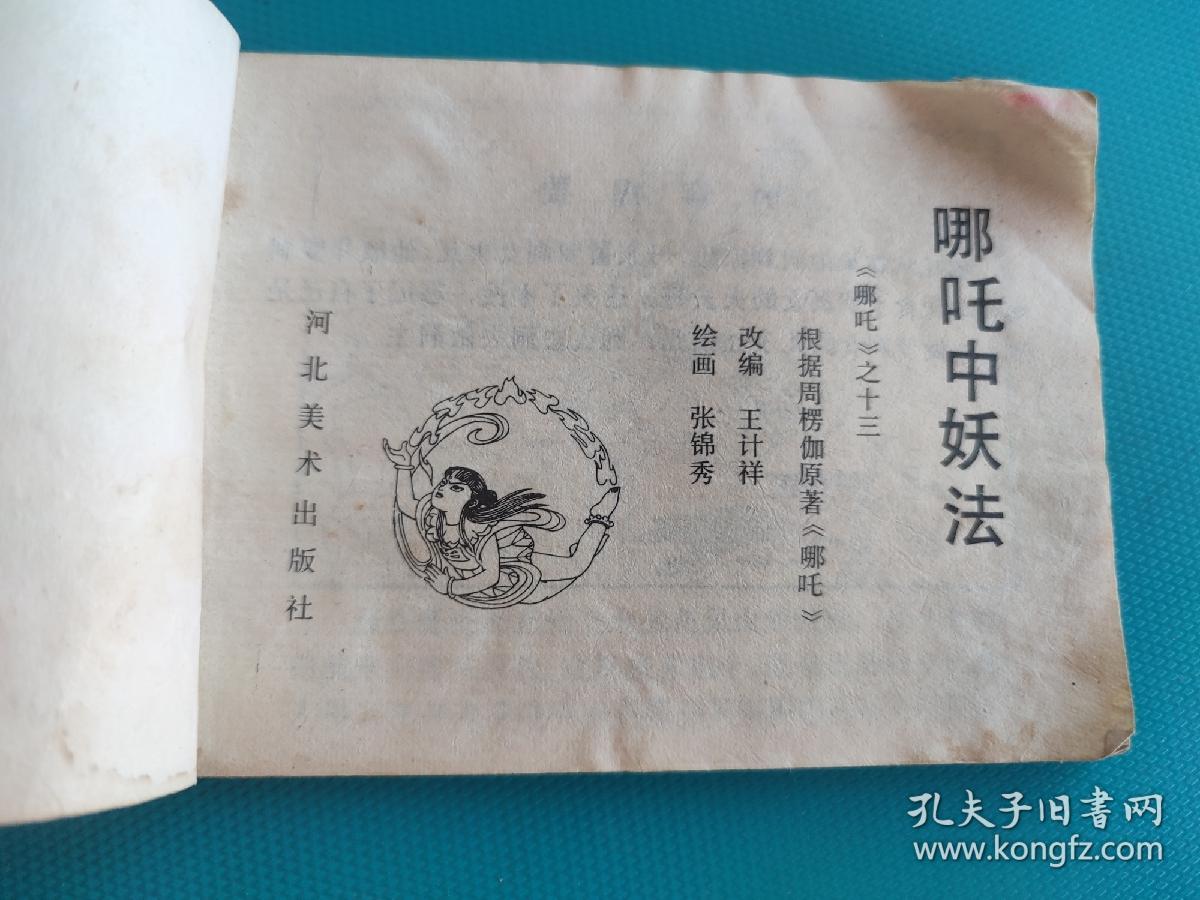 哪吒中妖法
《哪吒》之十三
根据周楞伽原著《哪吒》
改编 王计祥
绘画 张锦秀
河北美术出版社
孔夫子旧书网
www.kongfz.com